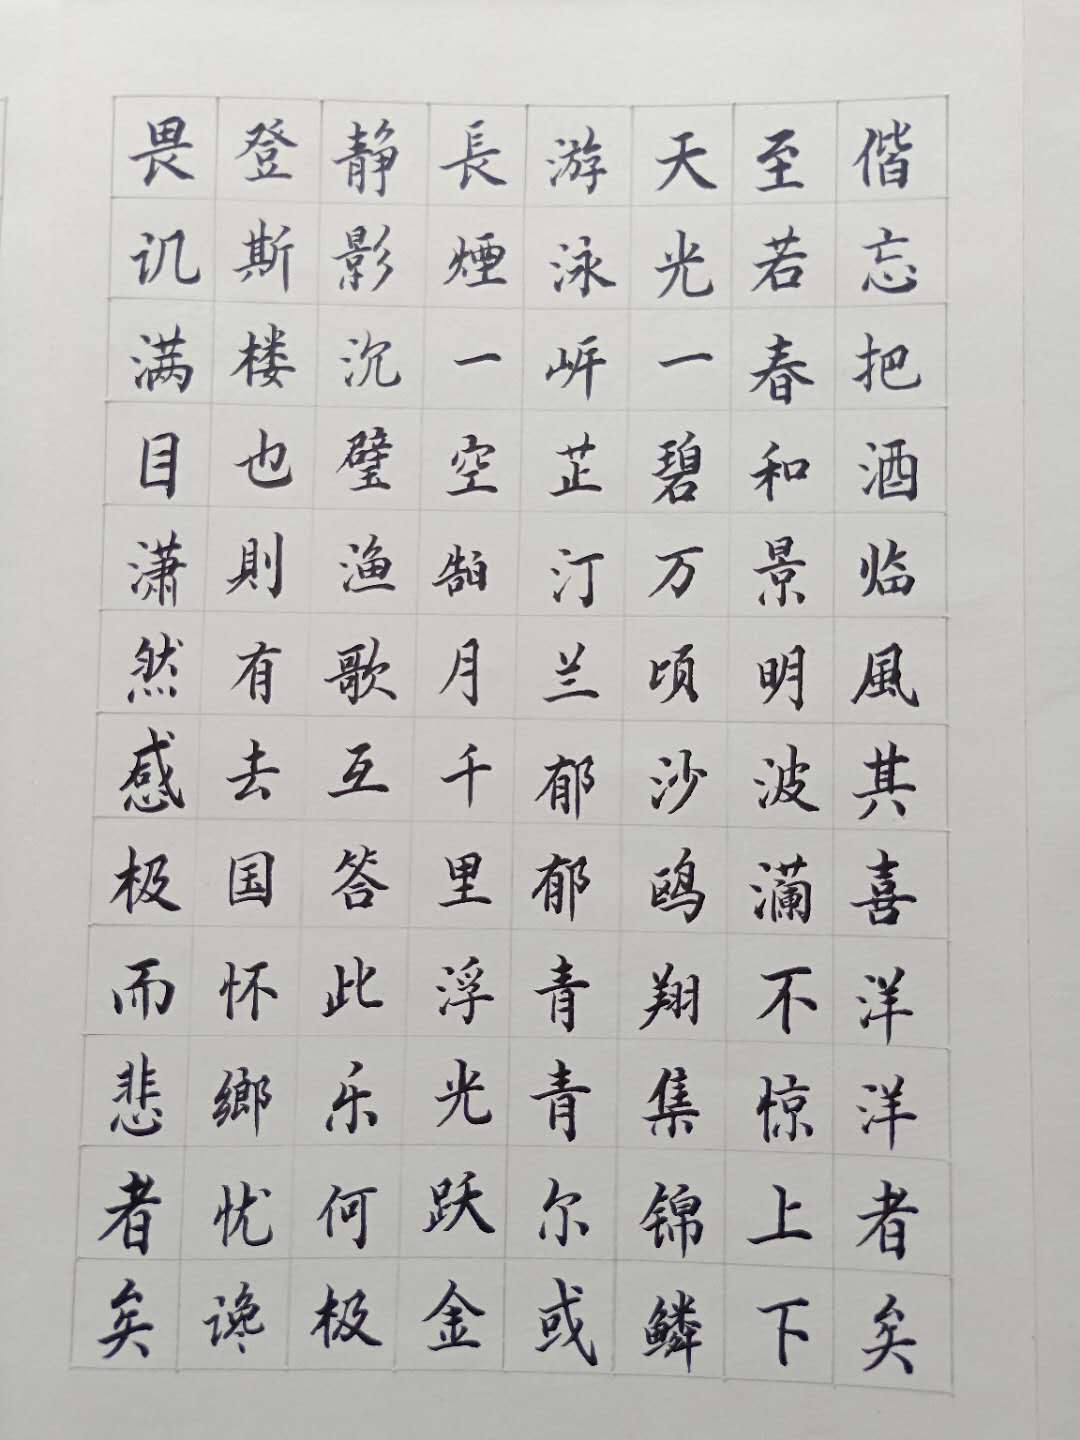 偕忘把酒临風其喜洋洋者矣
至若春和景明波澜不惊上下
天光一碧万顷沙鸥翔集锦鳞
游泳岸芷汀兰郁郁青青尔或
長煙一空皓月千里浮光跃金
静影沉璧渔歌互答此乐何极
登斯楼也則有去国怀鄉忧谗
畏讥满目潇然感极而悲者矣